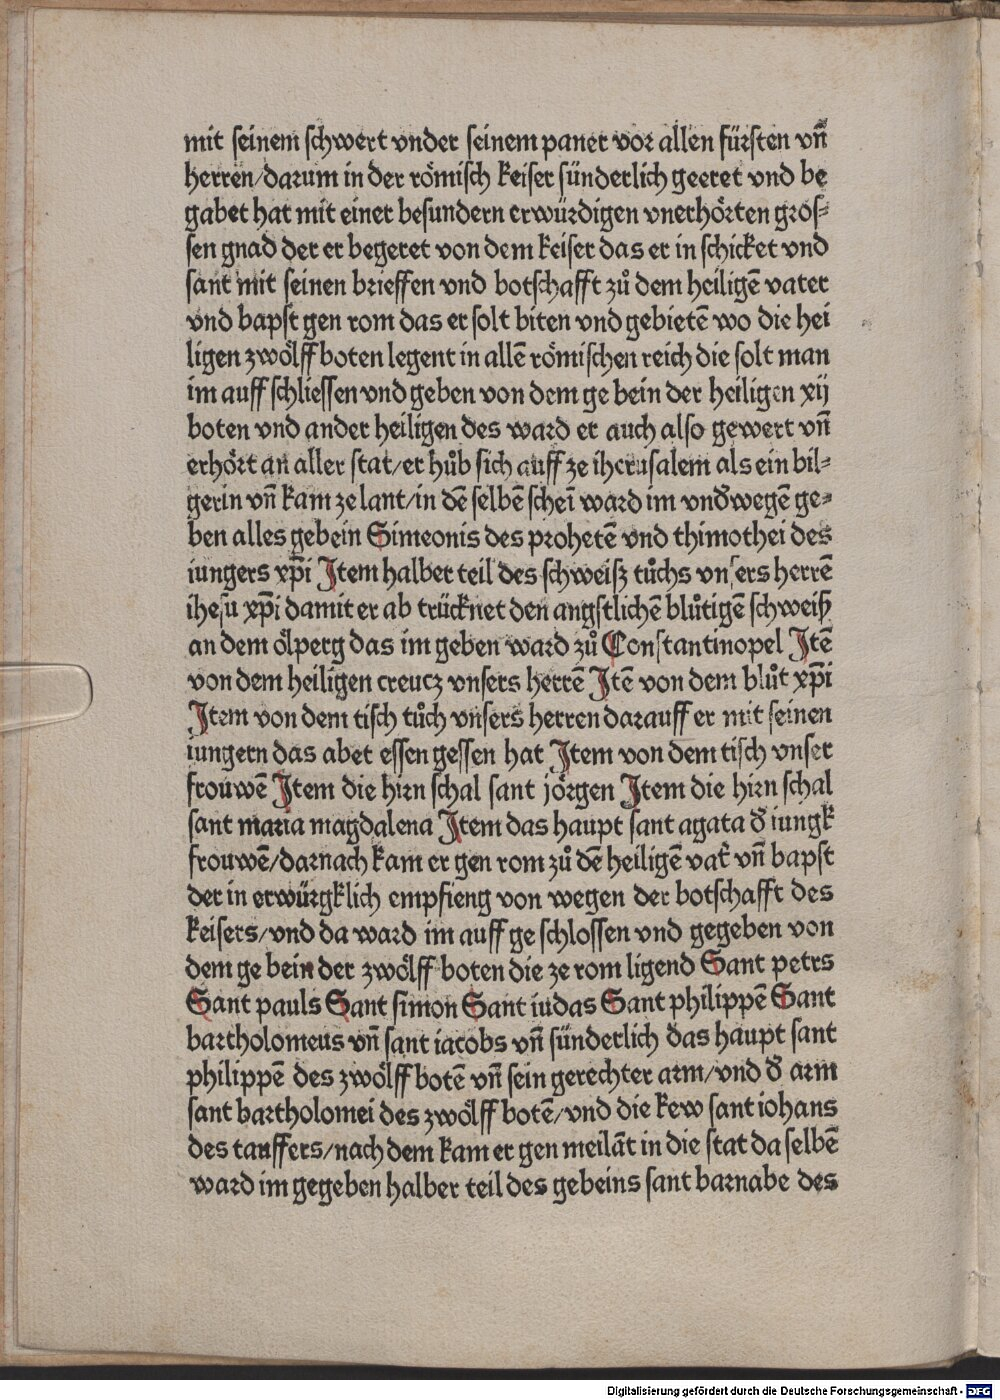 mit seinem schwert vnder seinem paner vor allen fürsten vñ
herren/darum in der römisch keiser sünderlich geeret vnd be
gabet hat mit einer besundern erwürdigen vnerhörten gros-
sen gnad der er begeret von dem keiser das er in schicket vnd
sant mit seinen brieffen vnd botschafft zů dem heiligē vater
vnd bapst gen rom das er solt biten vnd gebietē wo die hei
ligen zwölff boten legent in allē römischen reich die solt man
im auff schliessen vnd geben von dem ge bein der heiligen xij
boten vnd ander heiligen des ward er auch also gewert vñ
erhört an aller stat/er hůb sich auff ze iherusalem als ein bil-
gerin vñ kam ze lant/in dē selbē scheī ward im vnd̕wegē ge-
ben alles gebein Simeonis des prohetē vnd thimothei des
iungers xp̄i Item halber teil des schweisz tůchs vnsers herrē
ihesu xp̄i damit er ab trücknet den angstlichē blůtigē schweiß
an dem ölperg das im geben ward zů Constantinopel Itē
von dem heiligen creucz vnsers herrē Itē von dem blůt xp̄i
Item von dem tisch tůch vnsers herren darauff er mit seinen
iungern das abet essen gessen hat Item von dem tisch vnser
frouwē Item die hirn schal sant jörgen Item die hirn schal
sant maria magdalena Item das haupt sant agata d̕ iungk
frouwē/darnach kam er gen rom zů dē heiligē vat̕ vñ bapst
der in erwürgklich empfieng von wegen der botschafft des
keisers/vnd da ward im auff ge schlossen vnd gegeben von
dem ge bein der zwölff boten die ze rom ligend Sant petrs
Sant pauls Sant simon Sant iudas Sant philippē Sant
bartholomeus vñ sant iacobs vñ sünderlich das haupt sant
philippē des zwölff botē vñ sein gerechter arm/vnd d̕ arm
sant bartholomei des zwölff botē/vnd die kew sant iohans
des tauffers/nach dem kam er gen meilāt in die stat da selbē
ward im gegeben halber teil des gebeins sant barnabe des
Digitalisierung gefördert durch die Deutsche Forschungsgemeinschaft - DFG